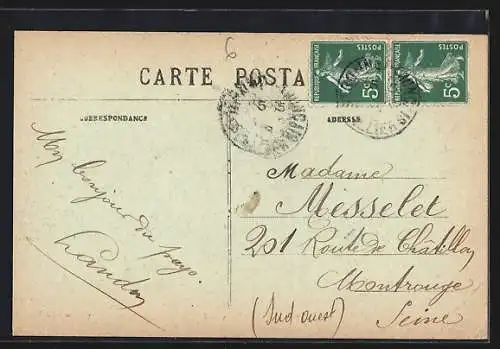 6
CARTE POSTA
RÉPUBLIQUE FRANÇAISE POSTES 5c
RÉPUBLIQUE FRANÇAISE POSTES 5c
CORRESPONDANCE
ADRESSE
Mon bonjour du pays.
Madame
Messelet
201 Route de Châtillon
Montrouge
(Sud ouest)
Seine